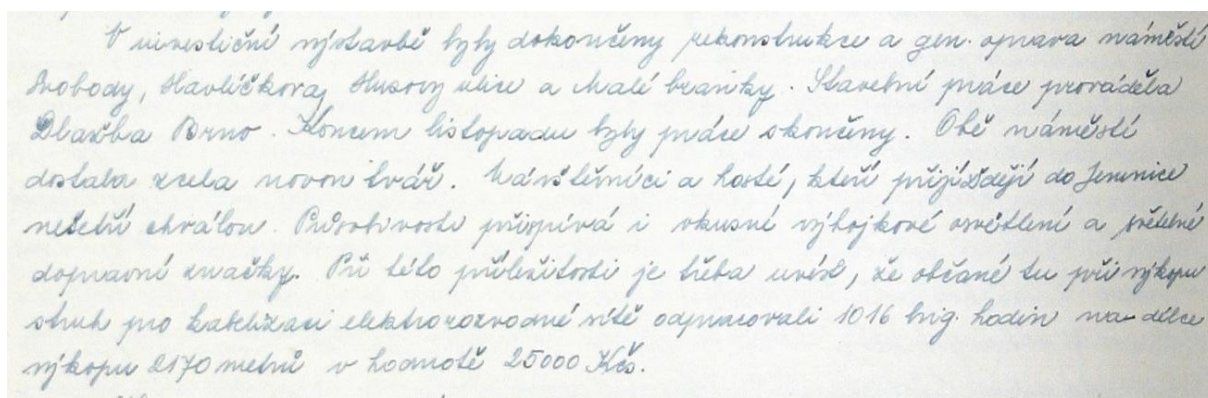 V investiční výstavbě byly dokončeny rekonstrukce a gen. oprava náměstí
Svobody, Havlíčkova, Husovy ulice a Malé branky. Stavební práce prováděla
Dlažba Brno. Koncem listopadu byly práce skončeny. Obě náměstí
dostala zcela novou tvář. Návštěvníci a hosté, kteří přijíždějí do Jemnice
nešetří chválou. Působivosti přispívá i vkusné výbojkové osvětlení a světelné
dopravní značky. Při této příležitosti je třeba uvést, že občané tu při výkopu
struh pro kabelizaci elektrorozvodné sítě odpracovali 1016 brig. hodin na délce
výkopu 2170 metrů v hodnotě 25000 Kčs.